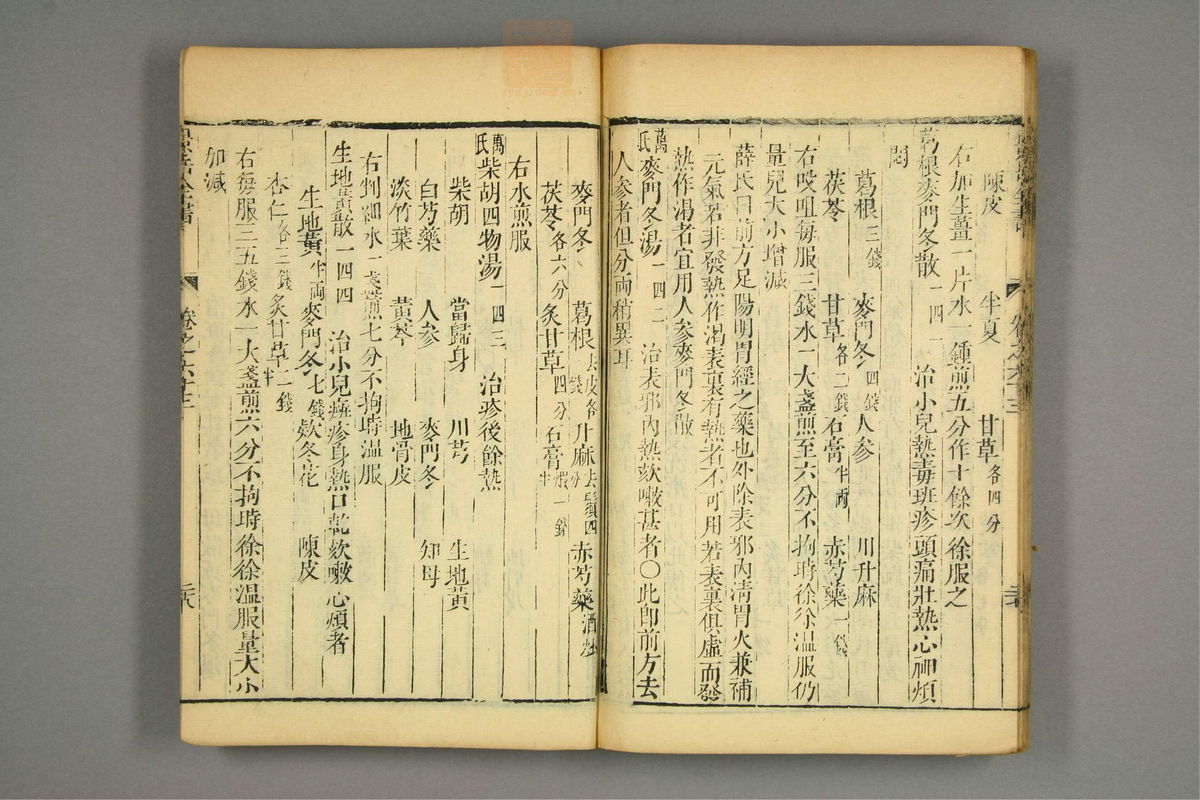 陳皮 半夏 甘草各四分
右加生薑一片水一鍾煎五分作十餘次徐服之
葛根麥門冬散一四一 治小兒熱毒班疹頭痛壯熱心神煩
悶
葛根三錢 麥門冬四錢 人參 川升麻
茯苓 甘草各二錢 石膏半兩 赤芍藥一錢
右㕮咀每服三錢水一大盞煎至六分不拘時徐徐溫服仍
量兒大小增減
薛氏曰前方足陽明胃經之藥也外除表邪內清胃火兼補
元氣若非發熱作渴表裏有熱者不可用若表裏俱虛而發
熱作渴者宜用人參麥門冬散
萬氏麥門冬湯一四二 治表邪內熱欬嗽甚者○此卽前方去
人參者但分兩稍異耳
麥門冬 葛根去皮各一錢 升麻去鬚四分 赤芍藥酒炒
茯苓各六分 炙甘草四分 石膏煆一錢半
右水煎服
萬氏柴胡四物湯一四三 治疹後餘熱
柴胡 當歸身 川芎 生地黃
白芍藥 人參 麥門冬 知母
淡竹葉 黃芩 地骨皮
右判細水一盞煎七分不拘時溫服
生地黃散一四四 治小兒痲疹身熱口乾欬嗽心煩者
生地黃半兩 麥門冬七錢 欵冬花 陳皮
杏仁各三錢 炙甘草二錢半
右每服三五錢水一大盞煎六分不拘時徐徐溫服量大小
加減
景岳全書 卷之六十三 三六